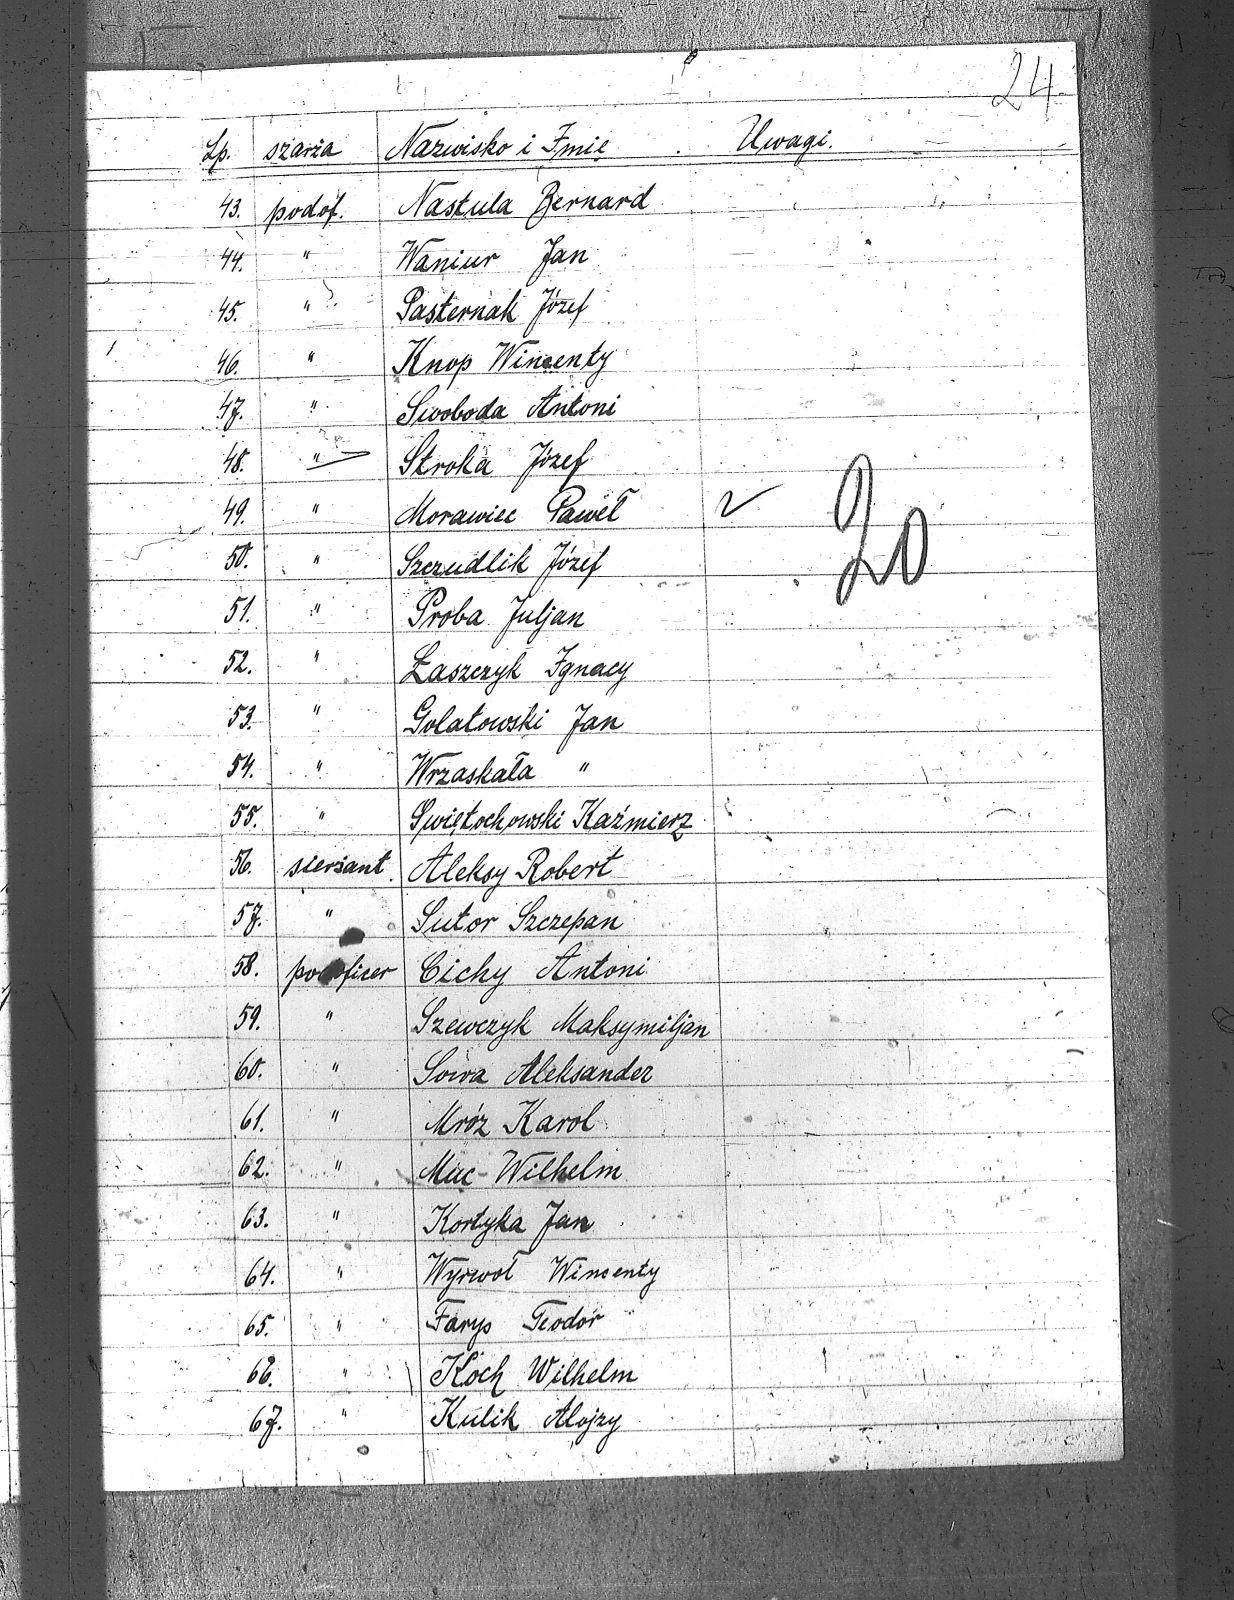 24.
Lp. szarża Nazwisko i Imię Uwagi.
43. podof. Nastula Bernard
44. " Waniur Jan
45. " Pasternak Józef
46. " Knop Wincenty
47. " Swoboda Antoni
48. " Stroka Józef
49. " Morawiec Paweł
20
50. " Szczudlik Józef
51. " Proba Juljan
52. " Łaszczyk Ignacy
53. " Golatowski Jan
54. " Wrzaskała "
55. " Świętochowski Kaźmierz
56. sierżant Aleksy Robert
57. " Sutor Szczepan
58. podoficer Cichy Antoni
59. " Szewczyk Maksymiljan
60. " Sowa Aleksander
61. " Mróz Karol
62. " Muc Wilhelm
63. " Kortyka Jan
64. " Wyrwoł Wincenty
65. " Farys Teodor
66. " Koch Wilhelm
67. " Kulik Alojzy